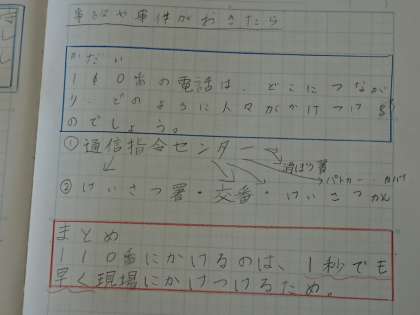 事故や事件がおきたら
かだい
110番の電話は、どこにつなが
り、どのように人々がかけつける
のでしょう。
①通信指令センター
消ぼう署
パトカー
②けいさつ署・交番・けいさつかん
まとめ
110番にかけるのは、1秒でも
早く現場にかけつけるため。